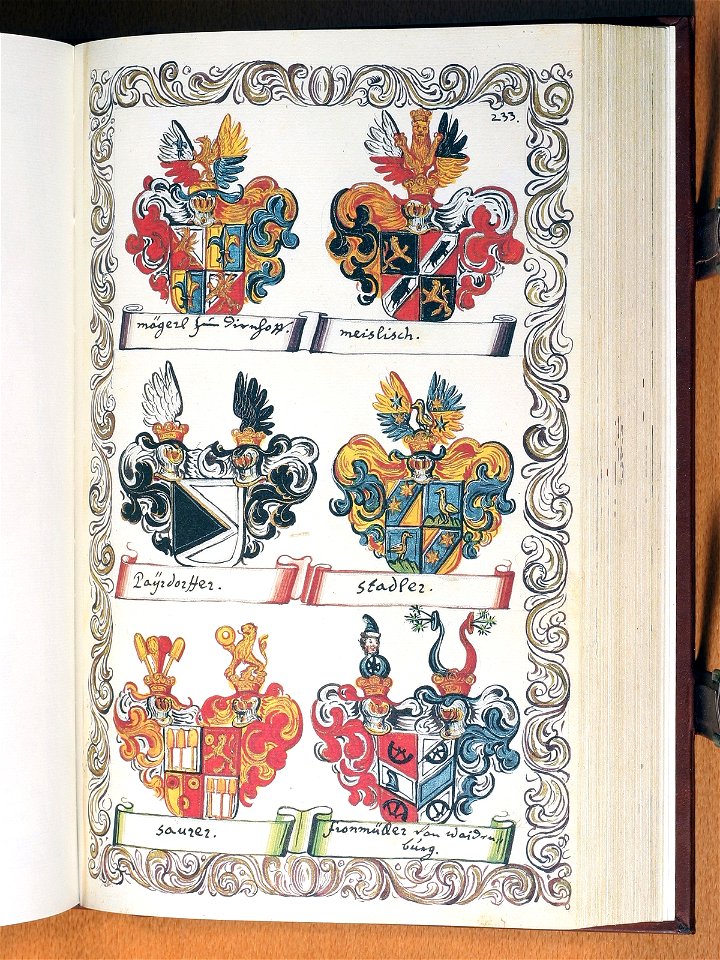 233.
mägerl zum Dirnhoff.
meislisch.
Paÿrdorffer.
stadler.
saurer.
fronmüller von
burg.